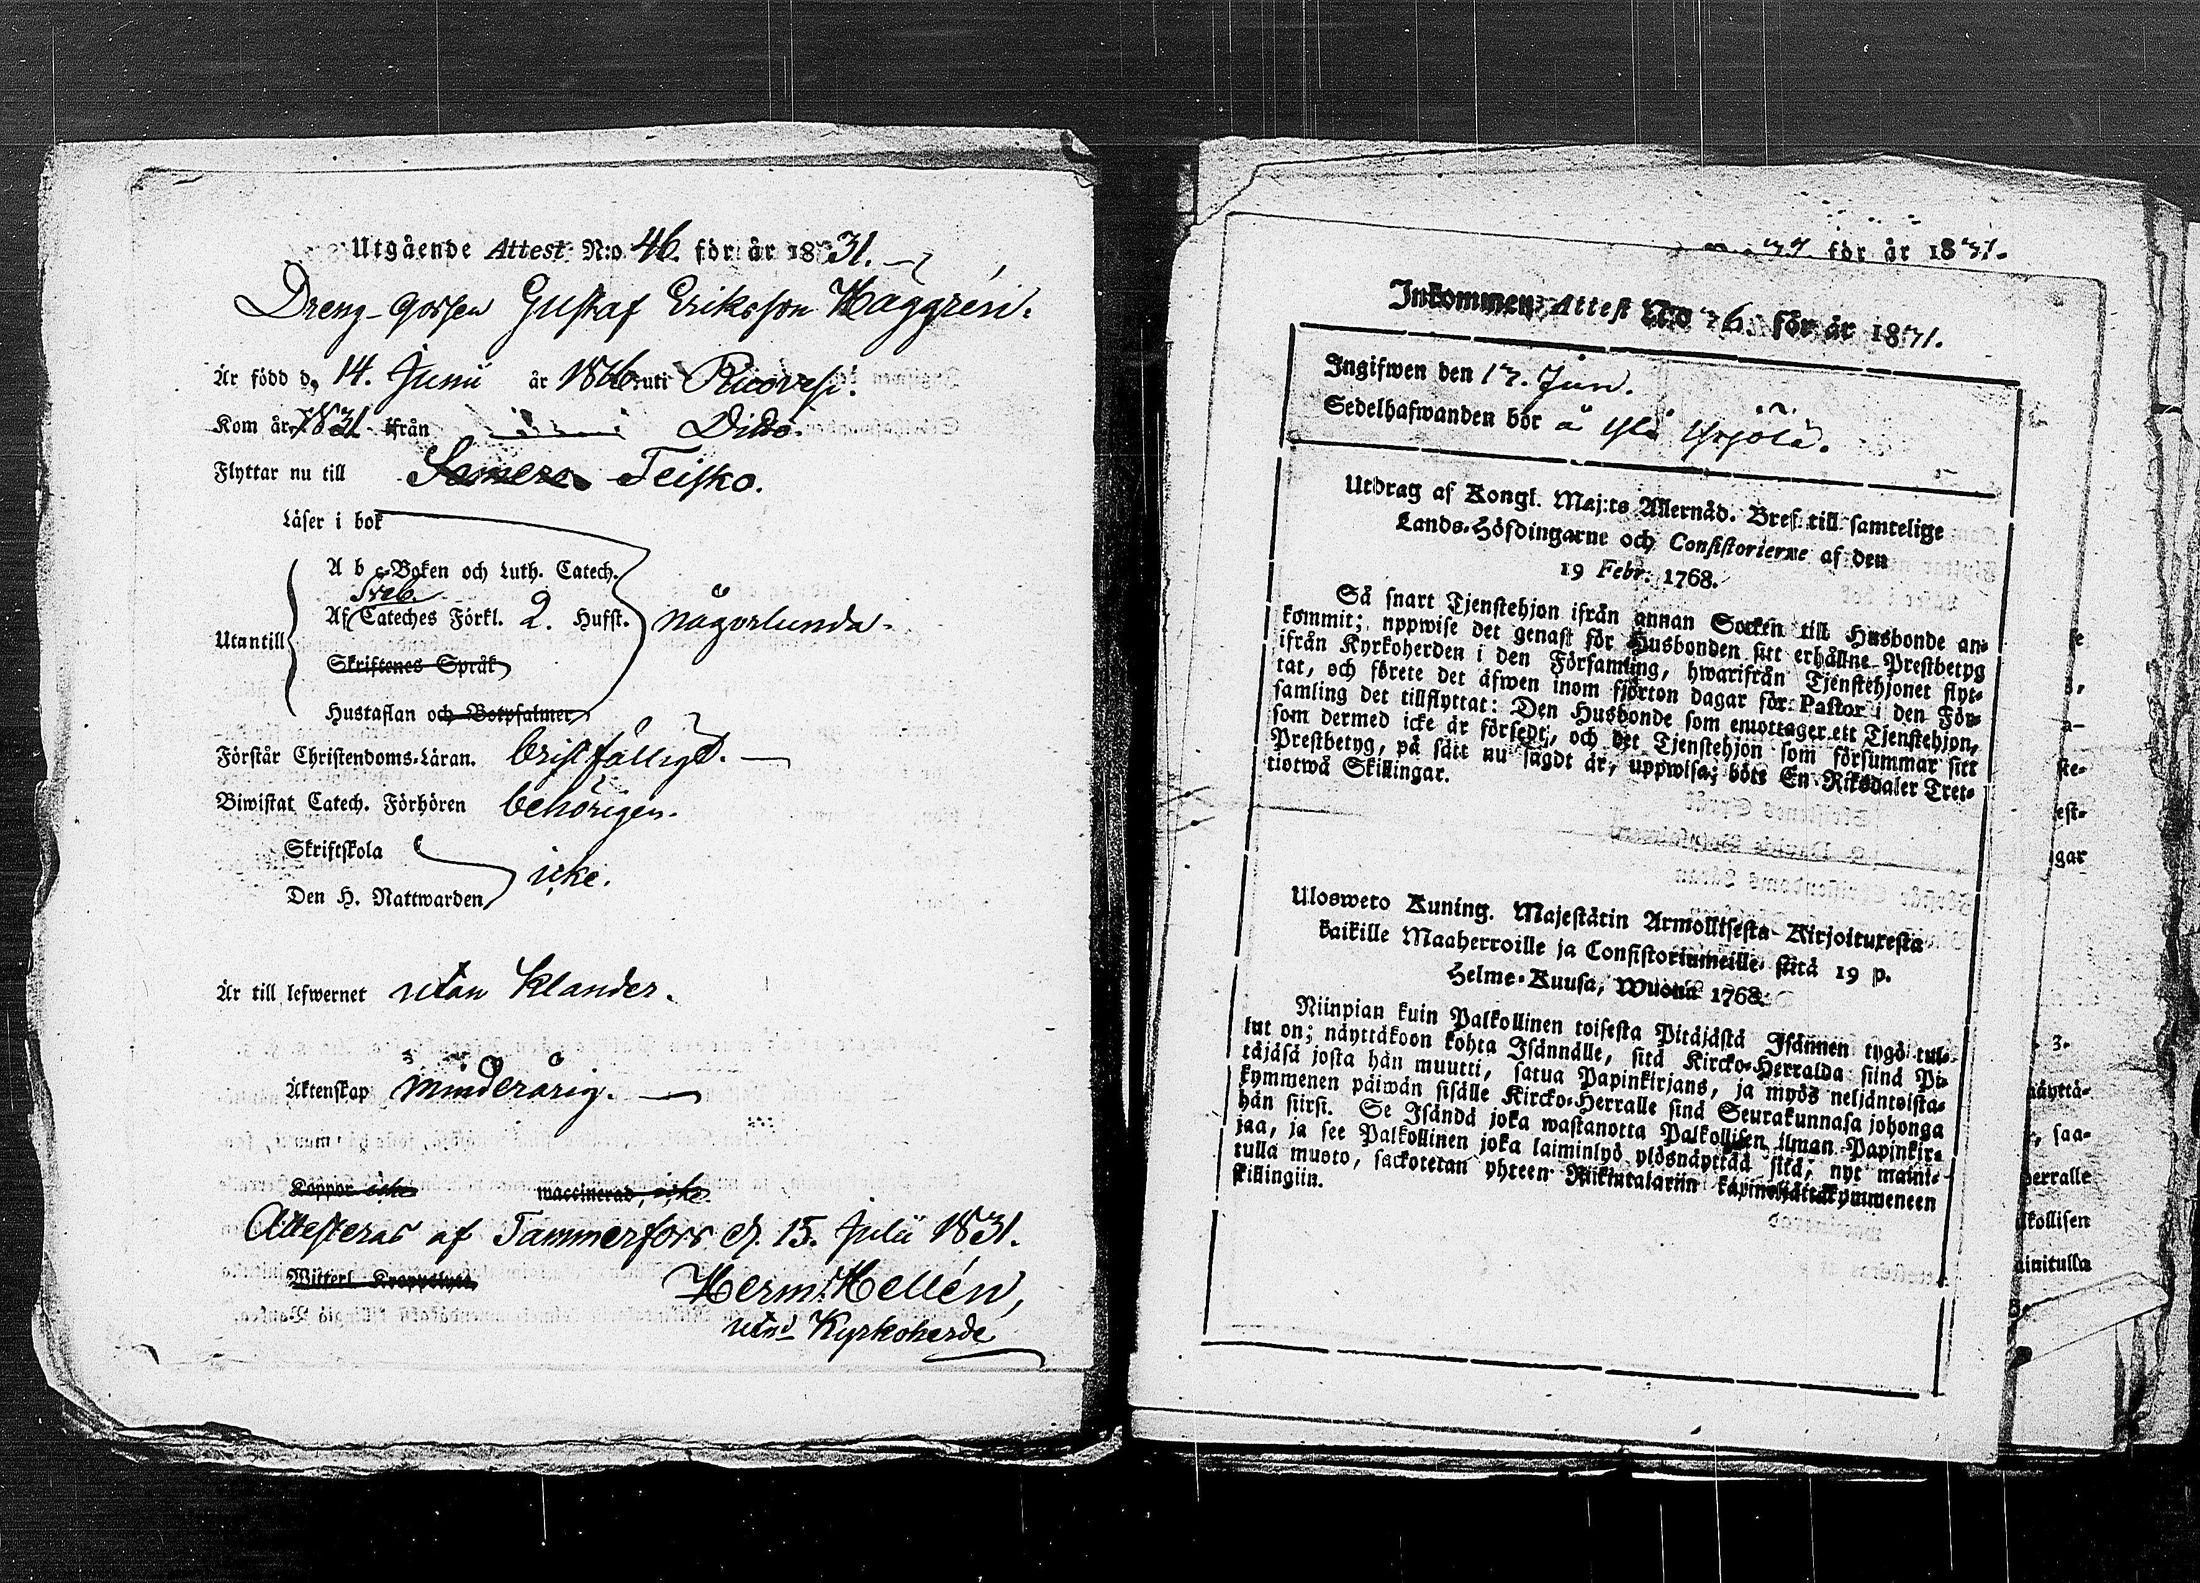 Utgående Attest N:o 46. för år 1831.
Dreng-gossen Gustaf Eriksson Häggrén.
Är född d. 14. Junii år 1816 uti Ruovesi.
Kom år 1831 ifrån Ditto.
Flyttar nu till Teisko.
Läser i bok
A b c-Boken och Luth. Catech.
Sveb.
Af Cateches Förkl. 2. Hufst. någorlunda.
Utantill
Skriftenes Språk
Hustaflan och Botpsalmer
Förstår Christendoms-Läran. bristfälligt.
Biwistat Catech. Förhören behörigen.
Skriftskola
icke.
Den H. Nattwarden
Är till lefwernet utan klander.
Äktenskap minderårig.
Koppor icke waccinerad, icke
Attesteras af Tammerfors d. 15. Julii 1831.
Herm. Hellén,
Kyrkoherde
för år 1831.
Inkommen Attest N:o 36. för år 1831.
Ingifwen den 17. Jun.
Sedelhafwanden bor å Yli
Utdrag af Kongl. Maj:ts Allernåd. Bref till samtelige
Lands-Höfdingarne och Consistorierne af den
19 Febr. 1768.
Så snart Tjenstehjon ifrån annan Socken till Husbonde an-
kommit; uppwise det genast för Husbonden sitt erhållne Prestbetyg
ifrån Kyrkoherden i den Församling, hwarifrån Tjenstehjonet flyt-
tat, och förete det äfwen inom fjorton dagar för Pastor i den För-
samling det tillflyttat: Den Husbonde som emottager ett Tjenstehjon,
som dermed icke är försedt, och det Tjenstehjon som försummar sitt
Prestbetyg, på sätt nu sagdt är, uppwisa; böte En Riksdaler Tret-
tiotwå Skillingar.
Ulosweto Kuning. Majestätin Armollisesta Kirjoituxesta
kaikille Maaherroille ja Consistoriumeille siitä 19 p.
Helme-Kuusa, Wuona 1768.
Niinpian kuin Palkollinen toisesta Pitäjästä Isännen tygö tul-
lut on; näyttäkoon kohta Isännälle, sitä Kircko-Herralda siinä Pi-
täjäsä josta hän muutti, saatua Papinkirjans, ja myös neljäntoista-
kymmenen päiwän sisälle Kircko-Herralle sinä Seurakunnasa johonga
hän siirsi. Se Isändä joka wastanotta Palkollisen ilman Papinkir-
jaa, ja see Palkollinen joka laiminlyö ylösnäyttää sitä, nyt maini-
tulla muoto, sackotetan yhteen Riikintalariin
skillingiin.
ste-
est-
gar
näyttä-
saa-
herralle
lkollisen
ainitulla